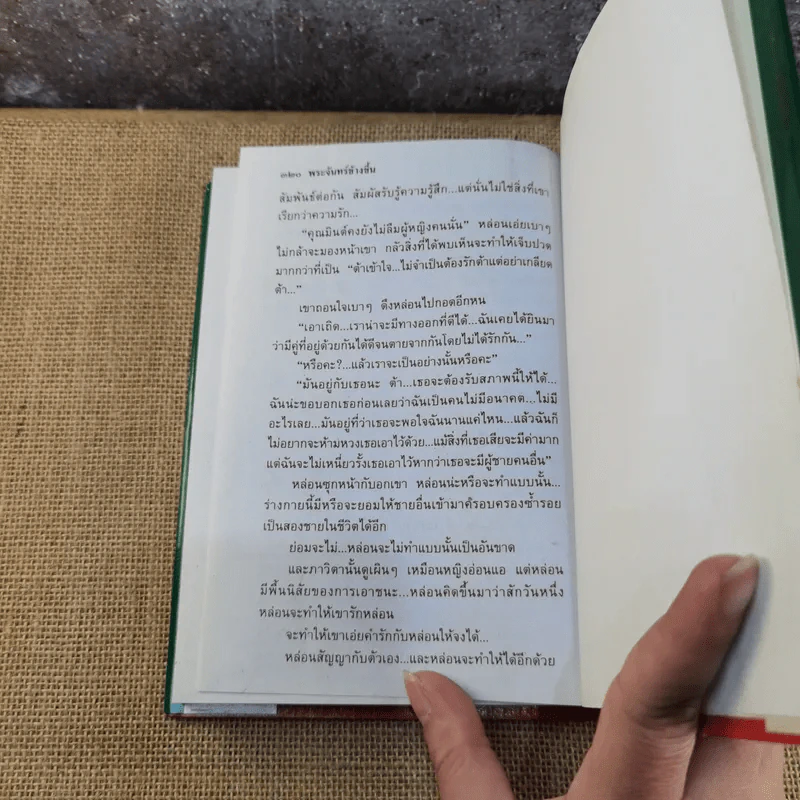 ๓๒๐ พระจันทร์ข้างขึ้น
สัมพันธ์ต่อกัน สัมผัสรับรู้ความรู้สึก...แต่นั่นไม่ใช่สิ่งที่เขา
เรียกว่าความรัก...
“คุณมินต์คงยังไม่ลืมผู้หญิงคนนั้น” หล่อนเอ่ยเบาๆ
ไม่กล้าจะมองหน้าเขา กลัวสิ่งที่ได้พบเห็นจะทำให้เจ็บปวด
มากกว่าที่เป็น “ต้าเข้าใจ...ไม่จำเป็นต้องรักต้าแต่อย่าเกลียด
ต้า...”
เขาถอนใจเบาๆ ดึงหล่อนไปกอดอีกหน
“เอาเถิด...เราน่าจะมีทางออกที่ดีได้...ฉันเคยได้ยินมา
ว่ามีคู่ที่อยู่ด้วยกันได้ดีจนตายจากกันโดยไม่ได้รักกัน...”
“หรือคะ?...แล้วเราจะเป็นอย่างนั้นหรือคะ”
“มันอยู่กับเธอนะ ต้า...เธอจะต้องรับสภาพนี้ให้ได้...
ฉันน่ะขอบอกเธอก่อนเลยว่าฉันเป็นคนไม่มีอนาคต...ไม่มี
อะไรเลย...มันอยู่ที่ว่าเธอจะพอใจฉันนานแค่ไหน...แล้วฉันก็
ไม่อยากจะห้ามหวงเธอเอาไว้ด้วย...แม้สิ่งที่เธอเสียจะมีค่ามาก
แต่ฉันจะไม่เหนี่ยวรั้งเธอเอาไว้หากว่าเธอจะมีผู้ชายคนอื่น”
หล่อนซุกหน้ากับอกเขา หล่อนน่ะหรือจะทำแบบนั้น...
ร่างกายนี้มีหรือจะยอมให้ชายอื่นเข้ามาครอบครองซ้ำรอย
เป็นสองชายในชีวิตได้อีก
ย่อมจะไม่...หล่อนจะไม่ทำแบบนั้นเป็นอันขาด
และภาวิตานั้นดูเผินๆ เหมือนหญิงอ่อนแอ แต่หล่อน
มีพื้นนิสัยของการเอาชนะ...หล่อนคิดขึ้นมาว่าสักวันหนึ่ง
หล่อนจะทำให้เขารักหล่อน
จะทำให้เขาเอ่ยคำรักกับหล่อนให้จงได้...
หล่อนสัญญากับตัวเอง...และหล่อนจะทำให้ได้อีกด้วย